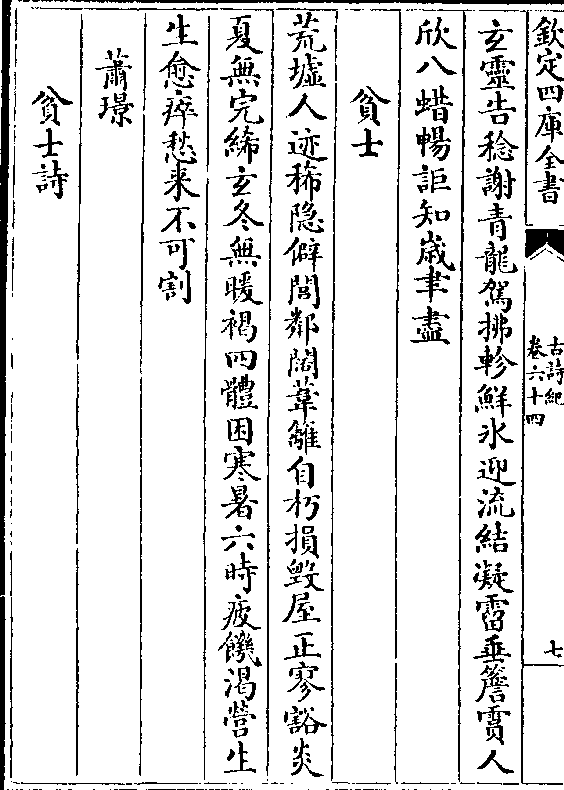 欽定四庫全書
古詩紀
卷六十四
七
玄靈告稔謝青龍駕拂軫鮮氷迎流結凝霤垂簷霣人
欣八蜡暢詎知歳聿盡
貧士
荒墟人迹稀隐僻閭鄰闊葦籬自朽損毁屋正寥豁炎
夏無完絺玄冬無暖褐四體困寒暑六時疲饑渴營生
生愈瘁愁来不可割
蕭璟
貧士詩